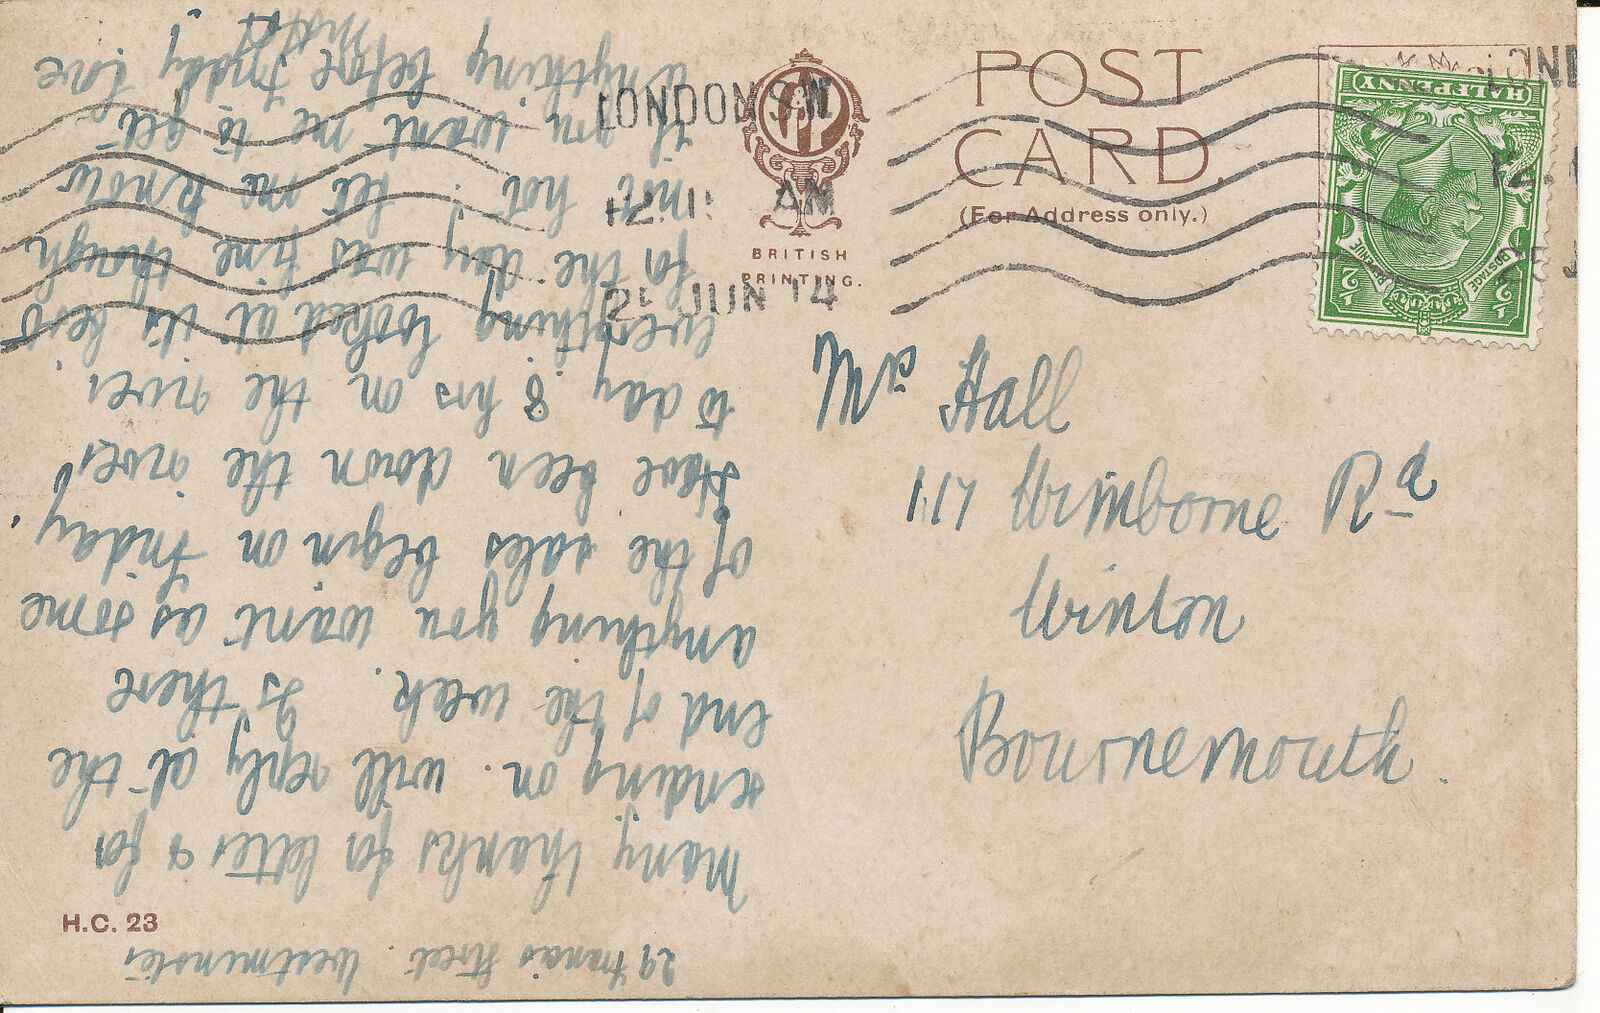 POST
CARD.
(For Address only.)
BRITISH
PRINTING.
LONDON S.W
12.11 AM
25 JUN 14
LOND
12.
HALFPENNY
POSTAGE
REVENUE
½ ½
Mrs Hall
117 Wimborne Rd
Winton
Bournemouth.
H.C. 23
29 Francis Street. Westminster
Many thanks for letter & for
sending on. will reply at the
end of the week. Is there
anything you want as some
of the sales begin on Friday.
Have been down the river
to day 8 hrs on the river.
everything looked at its best
for the day was fine though
not hot. Let me know
if you want me to get
anything before Friday Love